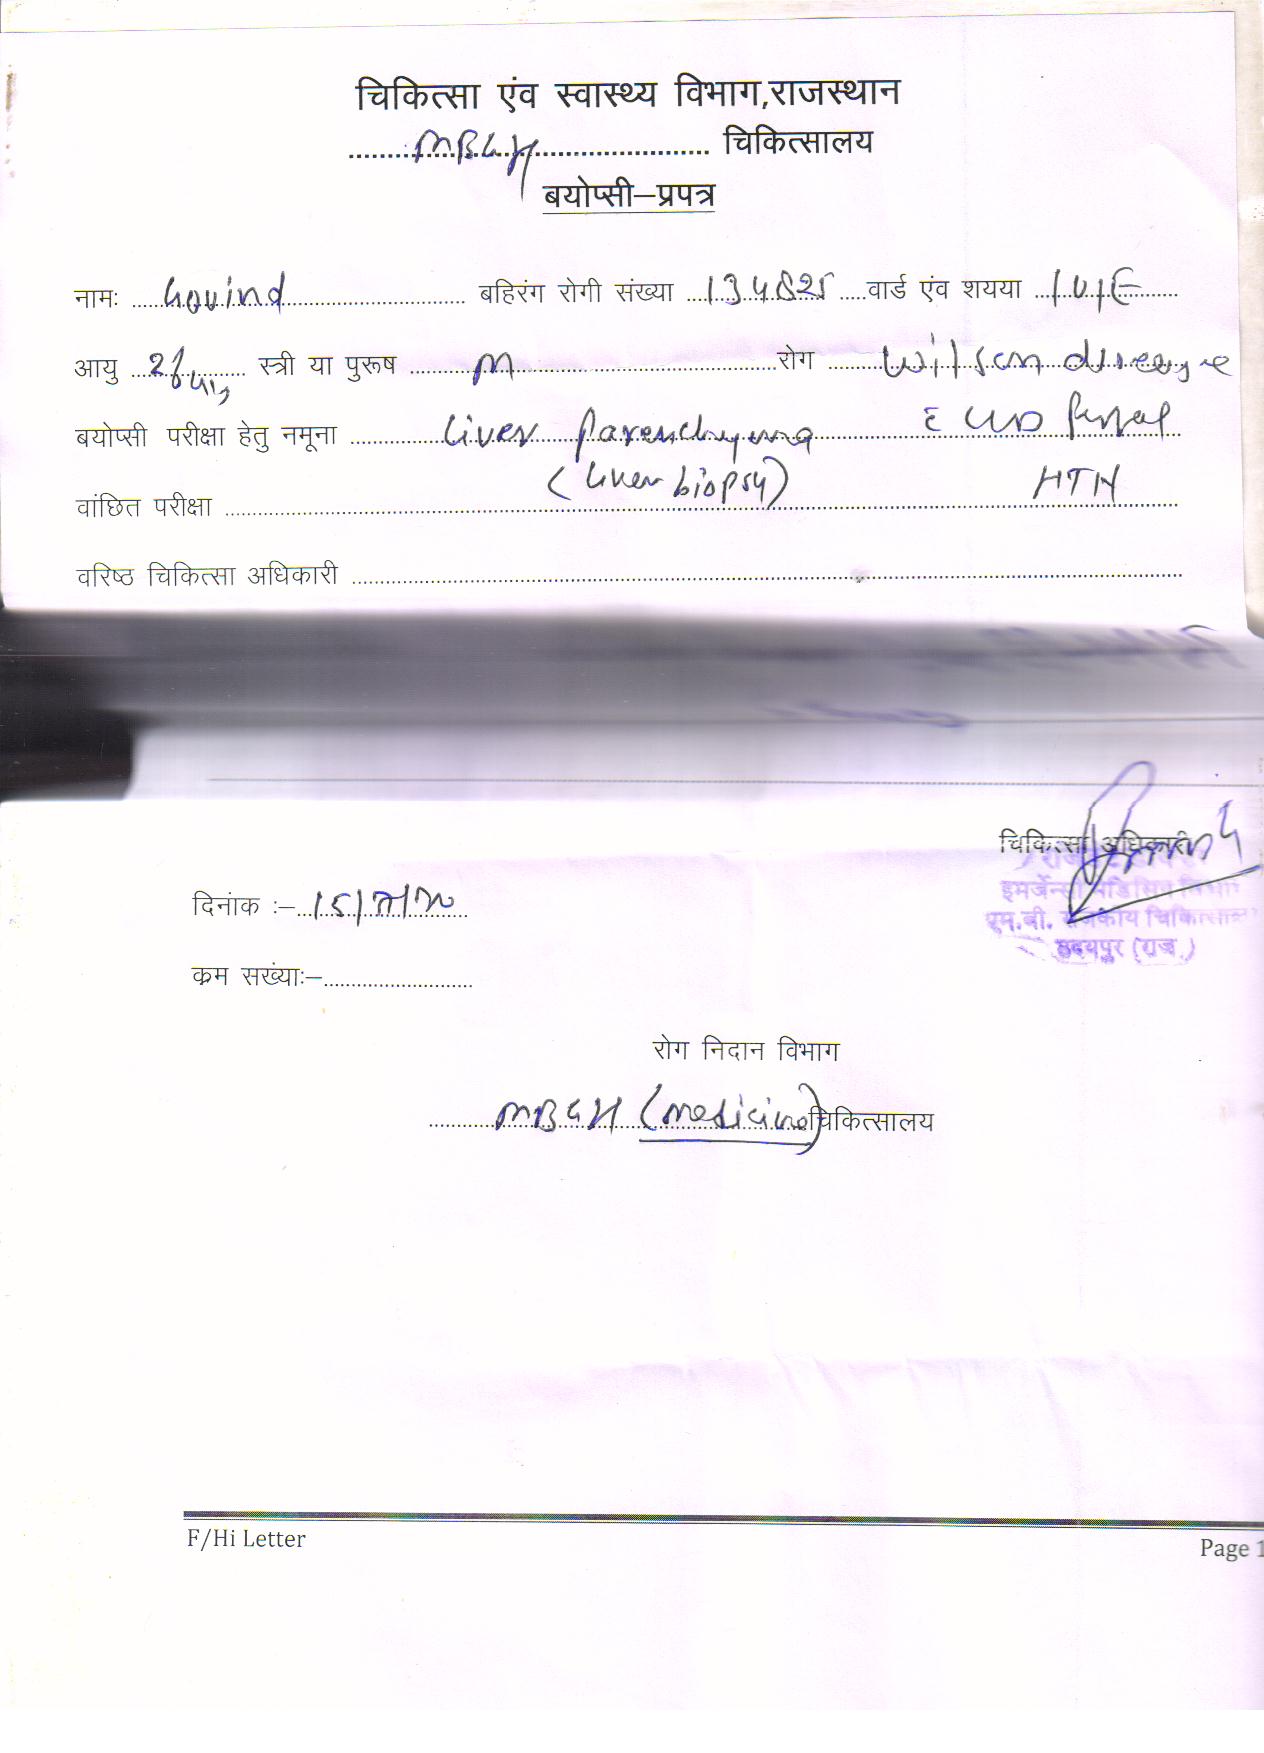 चिकित्सा एंव स्वास्थ्य विभाग,राजस्थान
MBGH चिकित्सालय
बयोप्सी–प्रपत्र
नामः Govind बहिरंग रोगी संख्या वार्ड एंव शयया
आयु स्त्री या पुरूष M रोग Wilson disease
बयोप्सी परीक्षा हेतु नमूना Liver Parenchyma
(Liver biopsy) HTN
वांछित परीक्षा
वरिष्ठ चिकित्सा अधिकारी
चिकित्सा अधिकारी
इमर्जेन्सी मेडिसिन विभाग
एम.बी. राजकीय चिकित्सालय
उदयपुर (राज.)
दिनांक :–
क्रम सख्ंयाः–
रोग निदान विभाग
MBGH (Medicine) चिकित्सालय
F/Hi Letter
Page 1